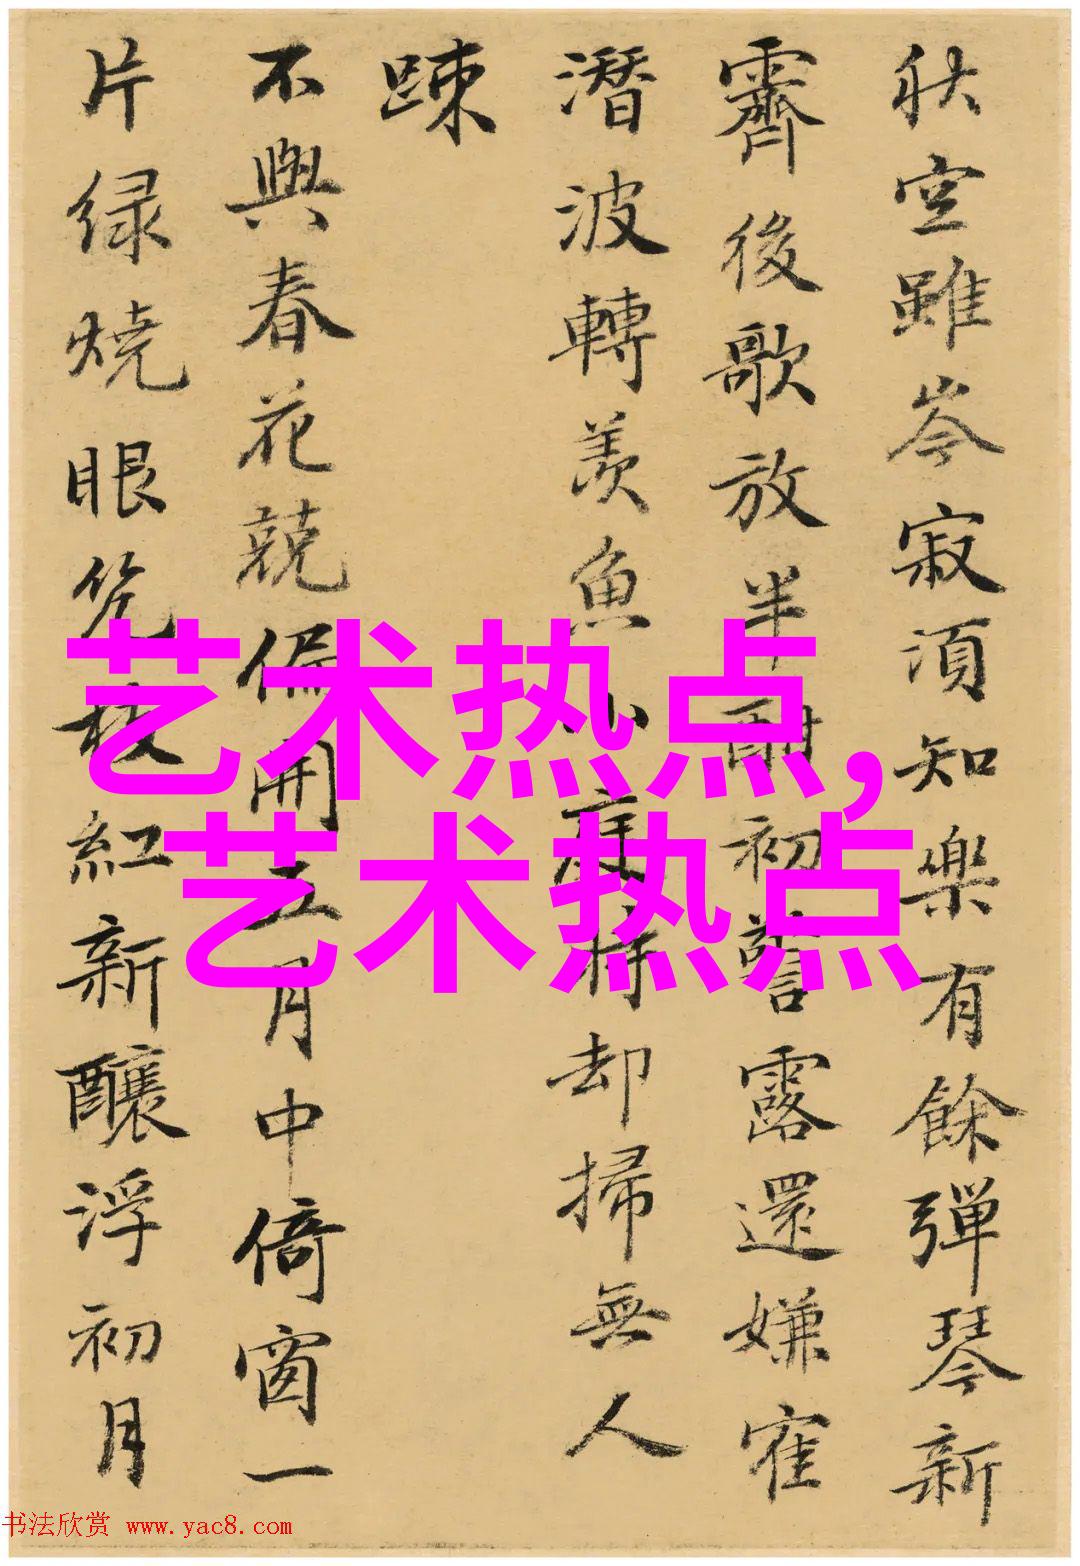 秋空雖岑寂須知樂有餘彈琴新
霽後歌放半酣初警露還嫌寉
潛波轉羡魚小庭特却掃無人
踈
不與春花競偏開五月中倚窗一
片緑燒眼枝紅新釀浮初月
艺术热点,
艺术热点
书法欣赏 www.yac8.com